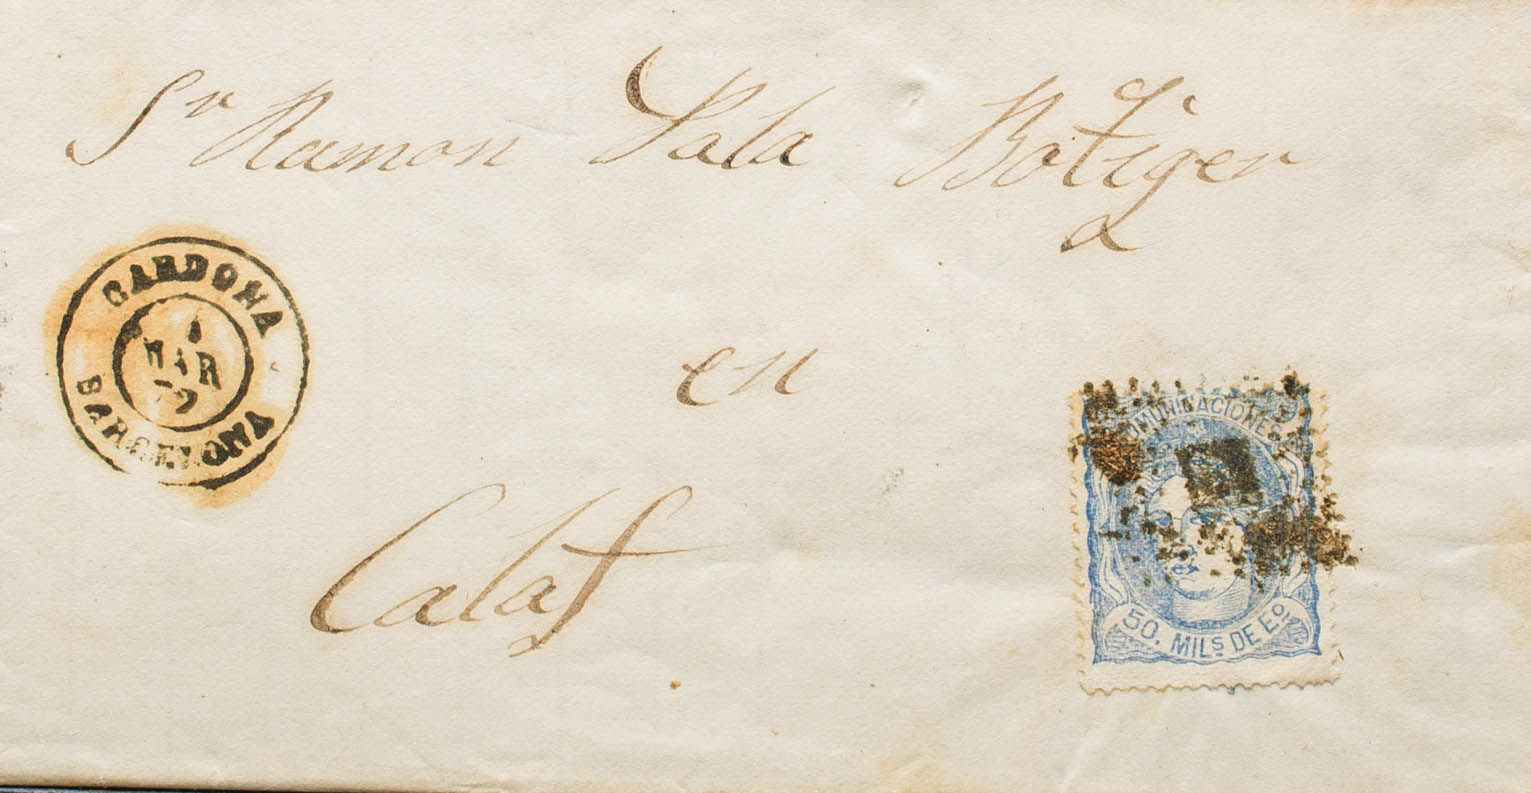 Sr Ramon Sala Botiger
CARDONA
MAR
72
BARCELONA
en
Calaf
COMUNICACIONES
50. MILS DE Eo